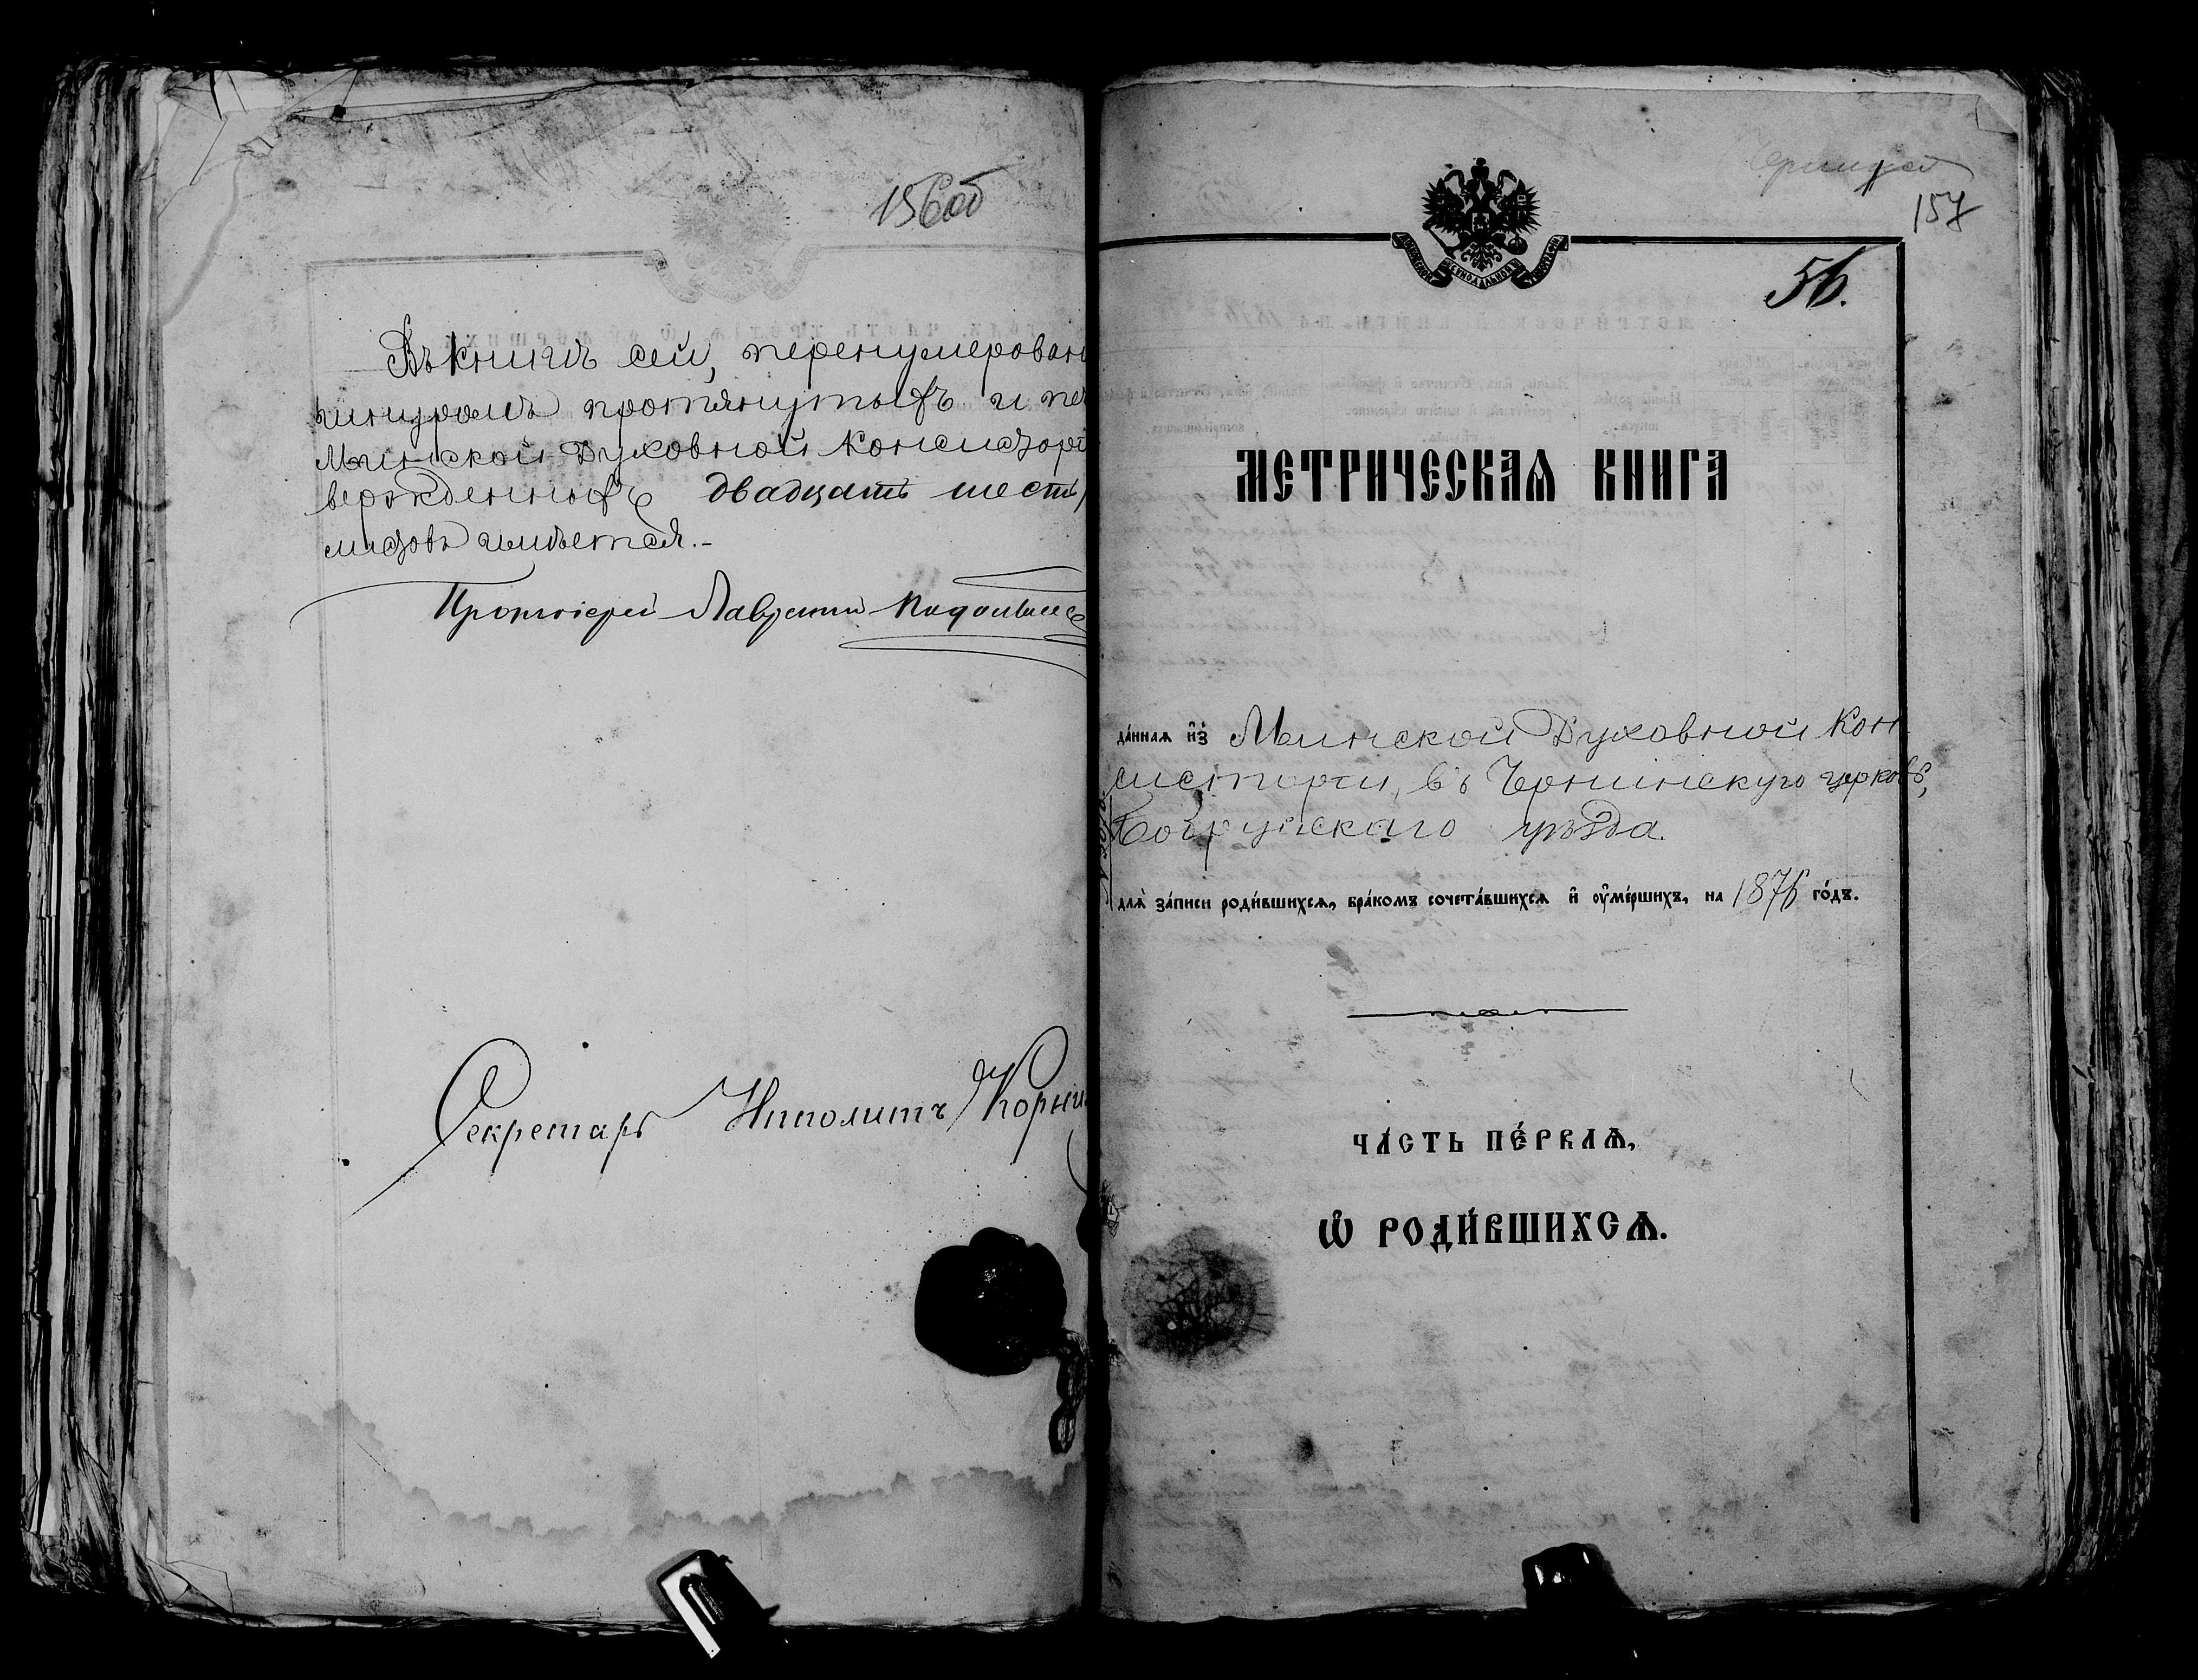 156об
Въ книгѣ сей, перенумерован
шнуромъ протянутыхъ и пе
Минской Духовной Консисторі
вержденныхъ двадцать шесть
листовъ имѣется.-
Протоіерей Лаврентій
Секретарь Ипполитъ Корни
157
МОСКОВСКОЙ СѴНОДАЛЬНОЙ ТѴПОГРАФІИ
56.
МЕТРИЧЕСКАѦ КНИГА
да́ннаѧ и҆з̾ Минской Духовной Кон
систоріи, въ Чернинскую церковь,
Бобруйскаго уѣзда
длѧ̀ за́писи роди́вшихсѧ, бра́комъ сочета́вшихсѧ и҆ ᲂу҆ме́ршихъ, на 1876 го́дъ.
ЧА́СТЬ ПЕ́РВАѦ,
Ѡ҆ РОДИ́ВШИХСѦ.